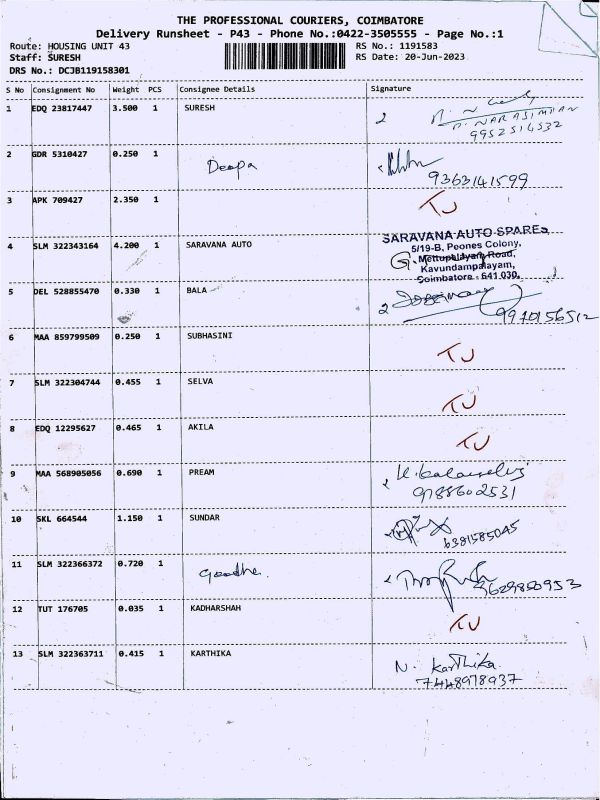 THE PROFESSIONAL COURIERS, COIMBATORE
Delivery Runsheet - P43 - Phone No.:0422-3505555 - Page No.:1
Route: HOUSING UNIT 43
Staff: SURESH
DRS No.: DCJB119158301
RS No.: 1191583
RS Date: 20-Jun-2023
S No Consignment No Weight PCS Consignee Details Signature
1 EDQ 23817447 3.500 1 SURESH
P. NARASIMHAN
9952514532
2 GDR 5310427 0.250 1 Deepa
9363141599
3 APK 709427 2.350 1 TJ
4 SLM 322343164 4.200 1 SARAVANA AUTO
SARAVANA AUTO SPARES,
5/19-B, Peones Colony,
Mettupalayam Road,
Kavundampalayam,
Coimbatore - 641 030.
5 DEL 528855470 0.330 1 BALA
9970156512
6 MAA 859799509 0.250 1 SUBHASINI TJ
7 SLM 322304744 0.455 1 SELVA TJ
8 EDQ 12295627 0.465 1 AKILA TJ
9 MAA 568905056 0.690 1 PREAM
9788602531
10 SKL 664544 1.150 1 SUNDAR
6381585045
11 SLM 322366372 0.720 1
9629850953
12 TUT 176705 0.035 1 KADHARSHAH TJ
13 SLM 322363711 0.415 1 KARTHIKA
N. Karthika
7448978937